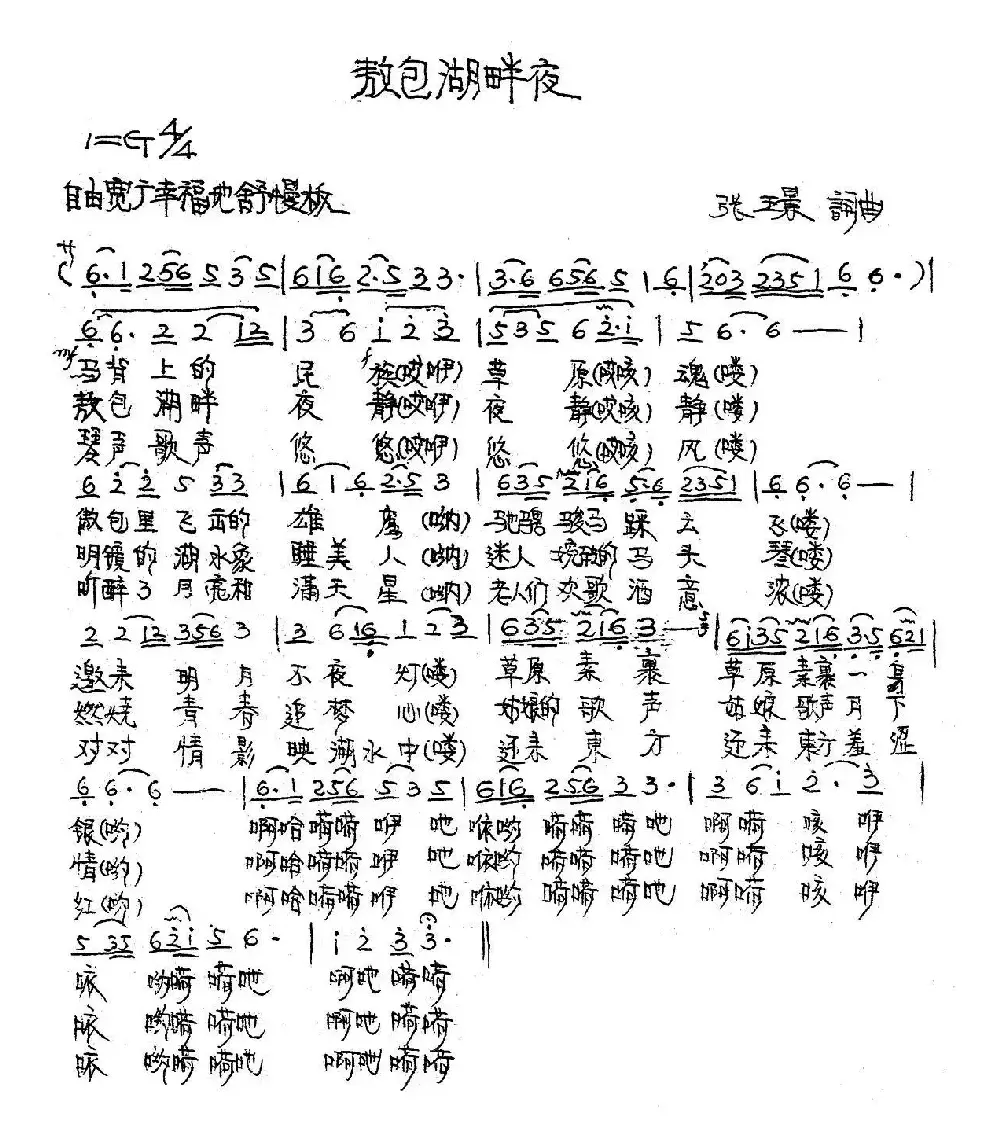 敖包湖畔夜
1=G 4/4
自由宽广幸福地舒慢板 张玉晨 詞曲
(6·1 256 5 35|616 2·5 3 3·|3·6 656 5 1 6|203 2351 6 6·)|
6 6· 2 2 12|3 6 i 2 3|535 6 2·i|5 6·6 —|
mf f
马背上的 民族(哎咿)草原(哎咳)魂(喽)
敖包湖畔 夜静(哎咿)夜静(哎咳)静(喽)
琴声歌声 悠悠(哎咿)悠悠(哎咳)风(喽)
6 2 2 5 33|6 1 6 2·5 3|635 216 5·6 2351|6 6·6 —|
敖包里飞出的 雄鹰(呐) 骏马踩云飞(喽)
明镜的湖水象 睡美人(呐)迷人 的马头琴(喽)
听醉了月亮和 满天星(呐)老人们欢歌酒意浓(喽)
2 2 12 356 3|3 6 16 1 2 3|635 216 3 —|6i35 216 3·5 621|
邀来明月不夜灯(喽)草原素裹 草原素裹一身
燃烧青春追梦心(喽)姑娘的歌声 姑娘歌声月下
对对情影映湖水中(喽)还来東方 还来東方羞涩
6 6·6 —|6·1 256 5 3 5|616 256 3 3·|3 6 i 2·3|
银(哟) 啊哈嗬嗬咿吔 咴哟嗬嗬嗬吔 啊嗬咳咿
情(哟) 啊哈嗬嗬咿吔 咴哟嗬嗬嗬吔 啊嗬咳咿
红(哟) 啊哈嗬嗬咿吔 咴哟嗬嗬嗬吔 啊嗬咳咿
5 35 62i 5 6·|i 2 3 3·‖
咴哟嗬嗬吔 啊吔嗬嗬
咴哟嗬嗬吔 啊吔嗬嗬
咴哟嗬嗬吔 啊吔嗬嗬